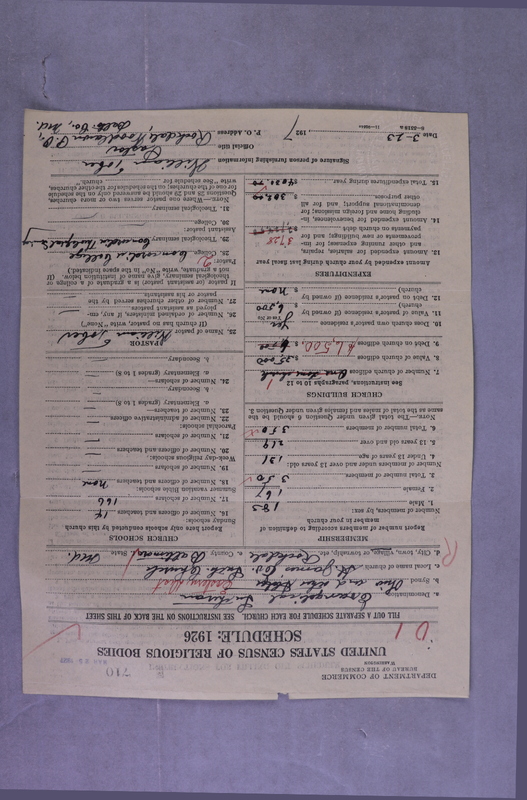 DEPARTMENT OF COMMERCE
BUREAU OF THE CENSUS
WASHINGTON
710
UNITED STATES CENSUS OF RELIGIOUS BODIES
SCHEDULE: 1926
FILL OUT A SEPARATE SCHEDULE FOR EACH CHURCH. SEE INSTRUCTIONS ON THE BACK OF THIS SHEET
a. Denomination Evangelical Lutheran
b. Synod Ohio and other States Eastern Dist.
c. Local name of church St. James Ev. Luth. Church
d. City, town, village, or township, etc. Rockdale e. County Baltimore State Md.
MEMBERSHIP
Report number of members according to definition of member in your church
Number of members, by sex:
1. Male 183
2. Female 167
3. Total number of members 350
Number of members under and over 13 years old:
4. Under 13 years of age 131
5. 13 years old and over 219
6. Total number of members 350
NOTE.—The total given under Question 6 should be the same as the total of males and females given under Question 3.
CHURCH BUILDINGS
See instructions, paragraphs 10 to 12
7. Number of church edifices 1
8. Value of church edifices $ 25000
9. Debt on church edifices $ 6,500
10. Does your church own pastor's residence Yes
(Yes or No)
11. Value of pastor's residence (if owned by church) $ 6,500
12. Debt on pastor's residence (if owned by church) $ None
EXPENDITURES
Amount expended by your church during last fiscal year
13. Amount expended for salaries, repairs, and other running expenses; for improvements or new buildings; and for payments on church debt $ 3728
14. Amount expended for missions, including home and foreign missions; for denominational support; and for all other purposes $ 302.00
15. Total expenditures during year $ 4030.00
CHURCH SCHOOLS
Report here only schools conducted by this church
Sunday schools:
16. Number of officers and teachers 14
17. Number of scholars 166
Summer vacation bible schools:
18. Number of officers and teachers None
19. Number of scholars
Week-day religious schools:
20. Number of officers and teachers
21. Number of scholars
Parochial schools:
22. Number of administrative officers
23. Number of teachers—
a. Elementary (grades 1 to 8)
b. Secondary
24. Number of scholars—
a. Elementary (grades 1 to 8)
b. Secondary
PASTOR
25. Name of pastor William Tober
(If church has no pastor, write "None")
26. Number of ordained ministers, if any, employed as assistant pastors
27. Number of other churches served by the pastor or his assistants
If pastor (or assistant pastor) is a graduate of a college or theological seminary, give name of institution below. (If not a graduate, write "No" in the space indicated.)
Pastor:
28. College Concordia College
29. Theological seminary Concordia Theological
Assistant pastor:
30. College
31. Theological seminary
NOTE.—Where one pastor serves two or more churches, Questions 28 and 29 should be answered only on the schedule for one of the churches; on the schedules for other churches, write "See schedule for church."
Signature of person furnishing information William Tober
Official title Pastor
Date 3-23 , 1927 P. O. Address Rockdale, Woodlawn P.O., Balto. Co., Md.